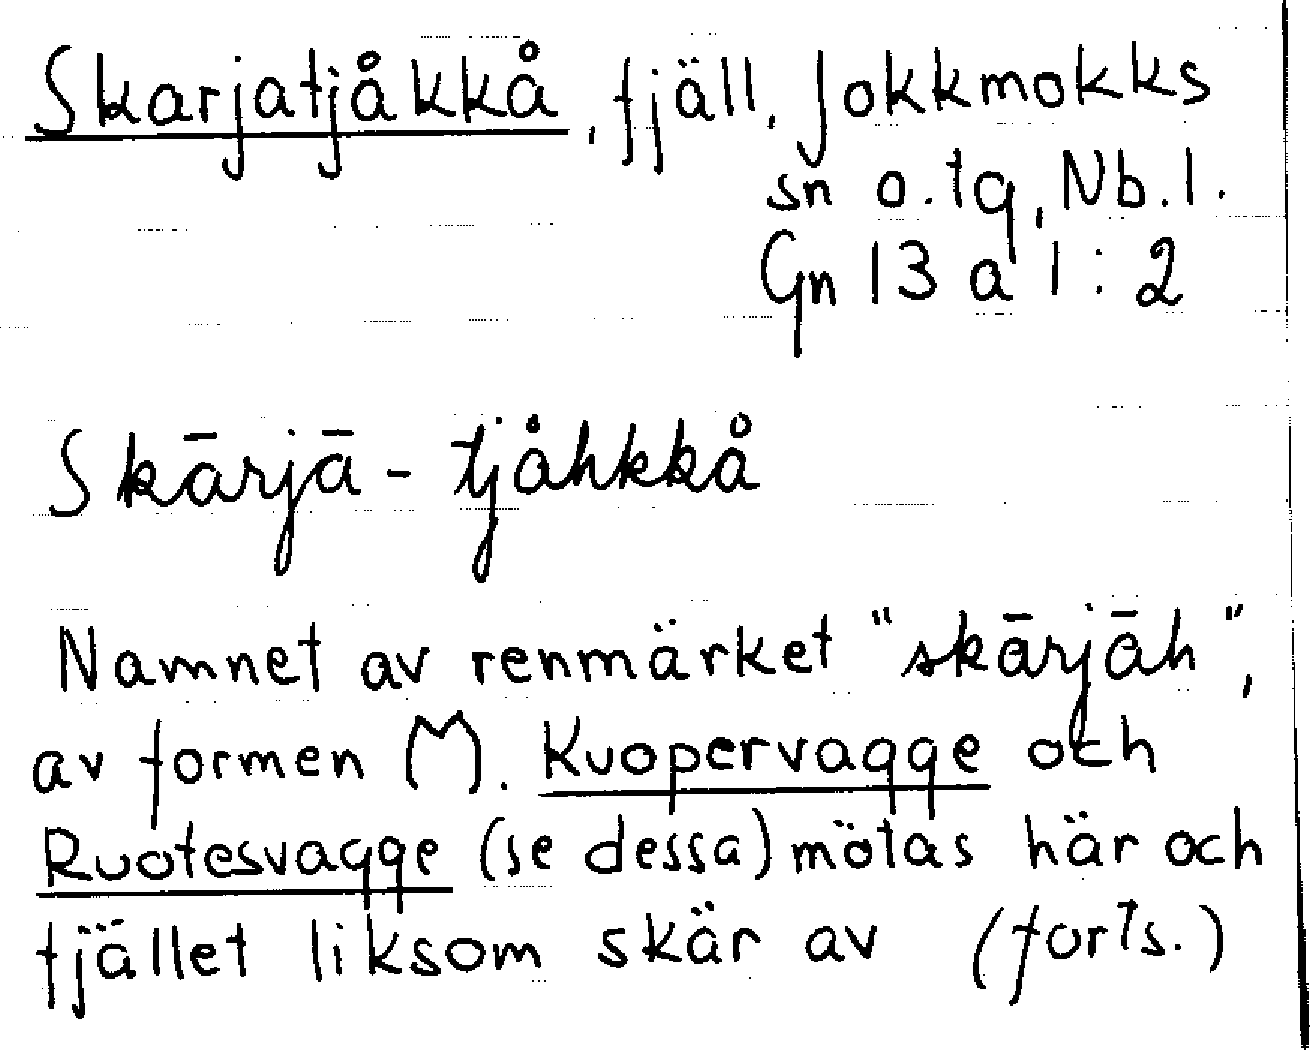 Skarjatjåkkå, fjäll, Jokkmokks
sn o. tg, Nb. l.
Gn 13 a 1 : 2
Skārjā - tjåhkkå
Namnet av renmärket "skārjāh",
av formen . Kuopervagge och
Ruotesvagge (se dessa) mötas här och
fjället liksom skär av (forts.)